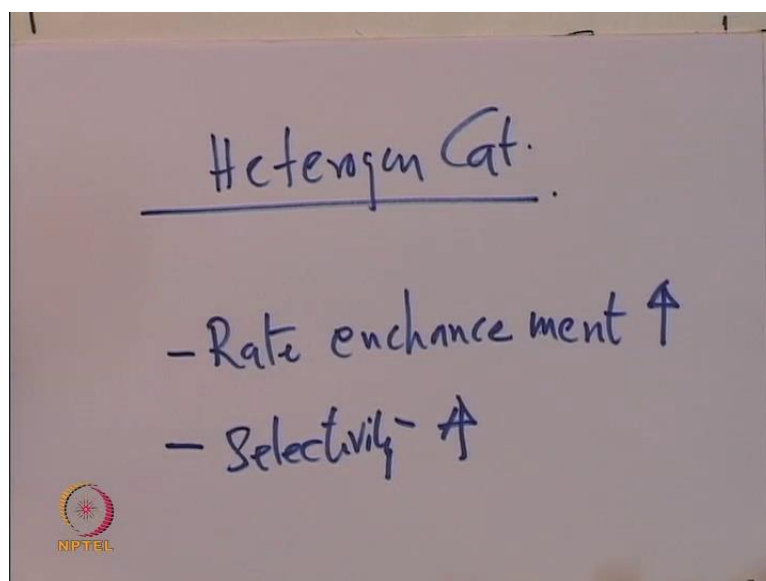 Heterogen Cat.
- Rate enchance ment ↑
- Selectivity ↑
NPTEL